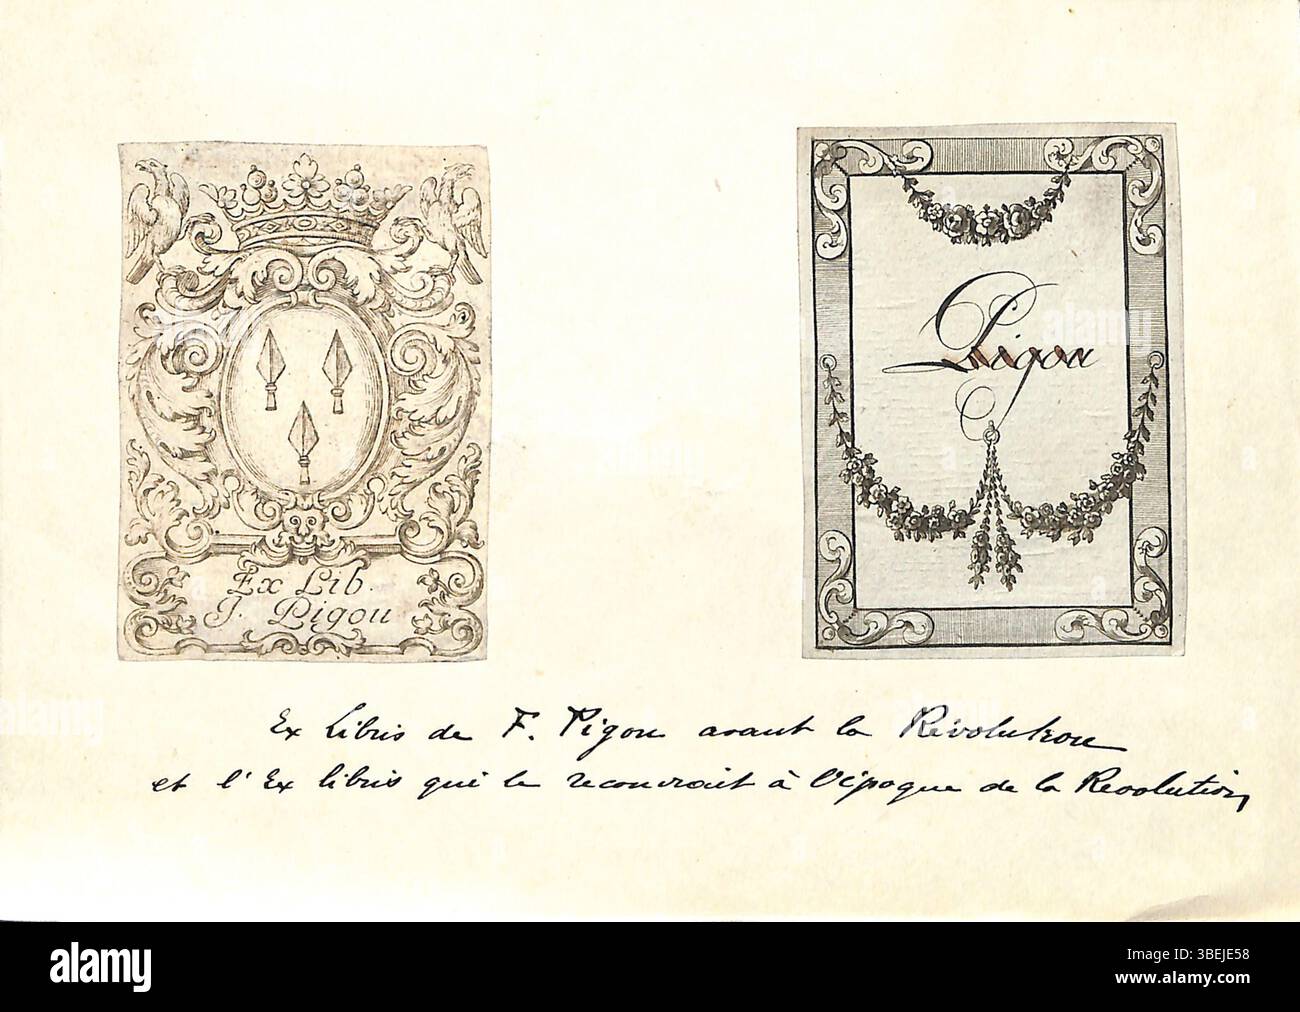 Ex Lib.
J. Pigou
Pigou
Ex Libris de F. Pigou avant la Révolution
et l'Ex libris qui le recouvrait à l'époque de la Revolution
alamy
Image ID: 3BEJE58
www.alamy.com